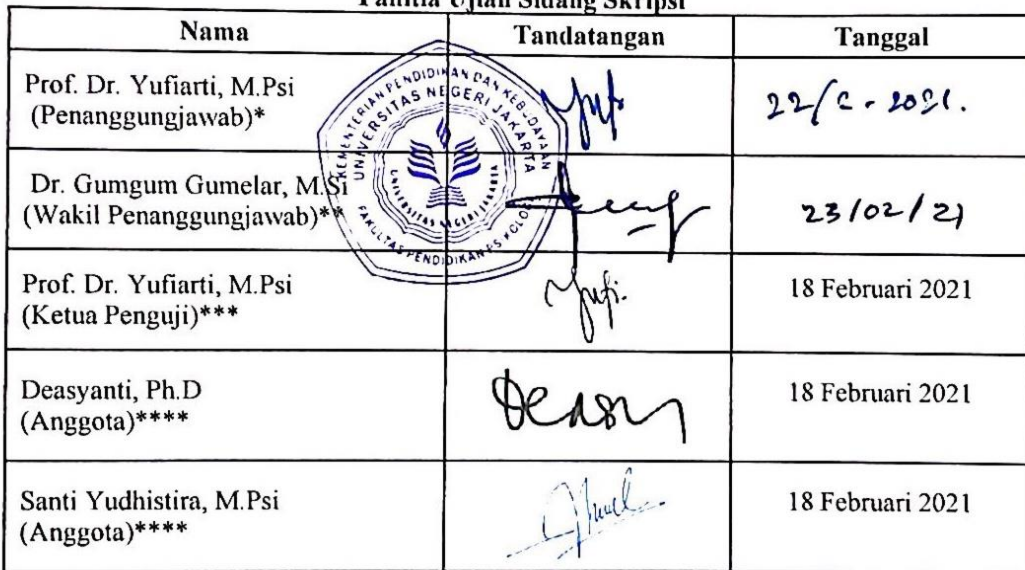 Panitia Ujian Sidang Skripsi
Nama Tandatangan Tanggal
Prof. Dr. Yufiarti, M.Psi
(Penanggungjawab)*
Dr. Gumgum Gumelar, M.Si
(Wakil Penanggungjawab)**
23/02/21
Prof. Dr. Yufiarti, M.Psi
(Ketua Penguji)***
18 Februari 2021
Deasyanti, Ph.D
(Anggota)****
18 Februari 2021
Santi Yudhistira, M.Psi
(Anggota)****
18 Februari 2021
KEMENTERIAN PENDIDIKAN DAN KEBUDAYAAN
UNIVERSITAS NEGERI JAKARTA
UNIVERSITAS NEGERI JAKARTA
FAKULTAS PENDIDIKAN PSIKOLOGI